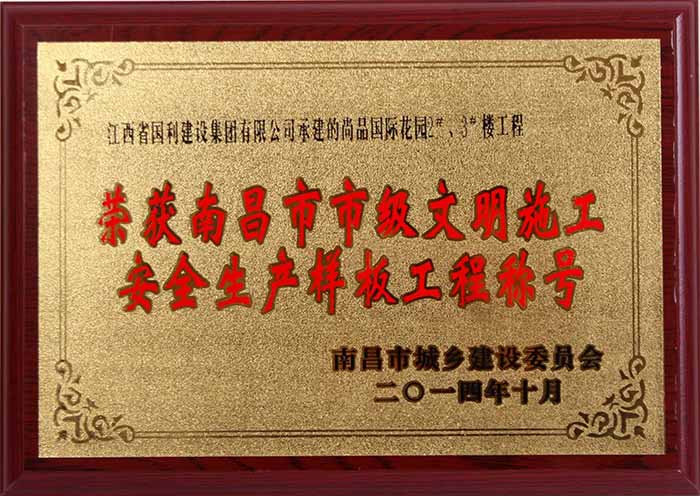 江西省国利建设集团有限公司承建的尚品国际花园2#、3#楼工程
荣获南昌市市级文明施工
安全生产样板工程称号
南昌市城乡建设委员会
二〇一四年十月